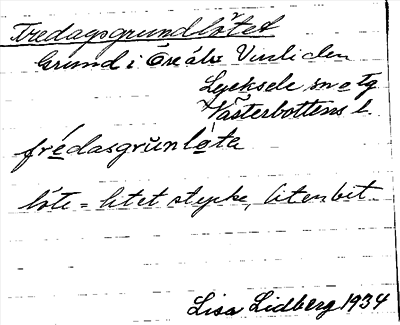 Fredagsgrundlåtet
Grund i Öreälv Vinliden
Lycksele sn o tg
Västerbottens l.
frédasgrŭnlota
låte = litet stycke, liten bit.
Lisa Lidberg 1934